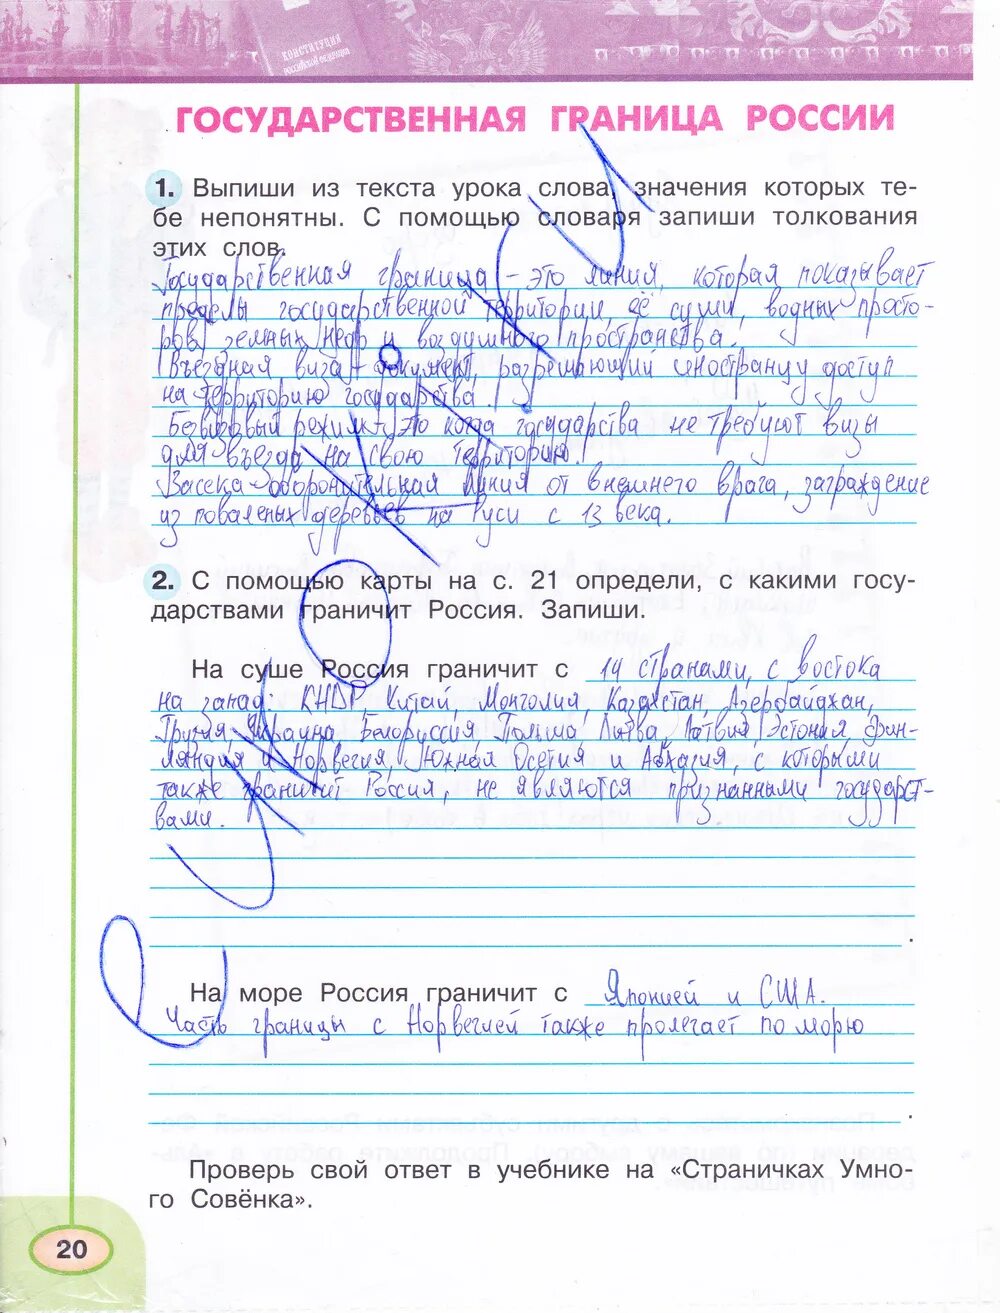 КОНСТИТУЦИЯ
ГОСУДАРСТВЕННАЯ ГРАНИЦА РОССИИ
1. Выпиши из текста урока слова, значения которых те-
бе непонятны. С помощью словаря запиши толкования
этих слов.
Государственная граница – это линия, которая показывает
пределы государственной территории, её суши, водных просто-
ров, земных недр и воздушного пространства.
Въездная виза – документ, разрешающий иностранцу доступ
на территорию государства.
Безвизовый режим – это когда государства не требуют визы
для въезда на свою территорию.
Засека – оборонительная линия от внешнего врага, заграждение
из поваленых деревьев на Руси с 13 века.
2. С помощью карты на с. 21 определи, с какими госу-
дарствами граничит Россия. Запиши.
На суше Россия граничит с 14 странами, с востока
на запад: КНДР, Китай, Монголия, Казахстан, Азербайджан,
Грузия, Украина, Белоруссия, Польша, Литва, Латвия, Эстония, Фин-
ляндия и Норвегия, Южная Осетия и Абхазия, с которыми
также граничит Россия, не являются признанными государст-
вами.
На море Россия граничит с Японией и США.
Часть границы с Норвегией также пролегает по морю
Проверь свой ответ в учебнике на «Страничках Умно-
го Совёнка».
20